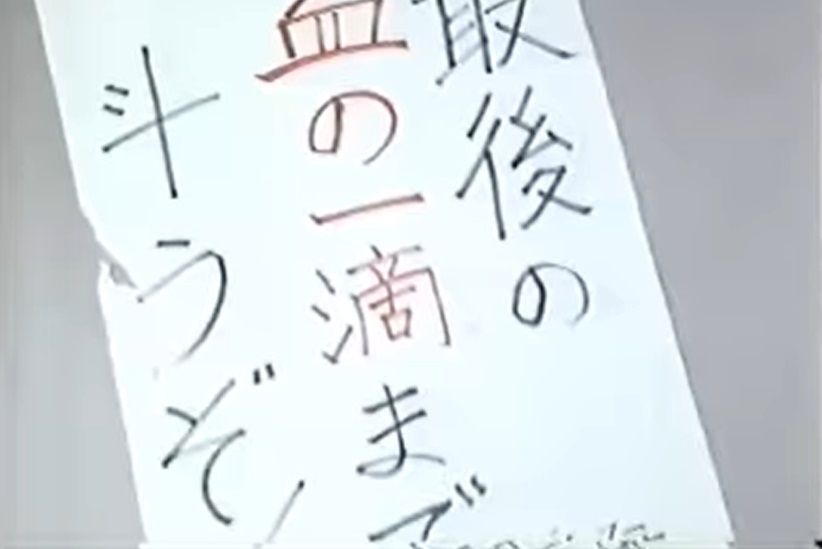 最後の
血の一滴まで
斗うぞ!